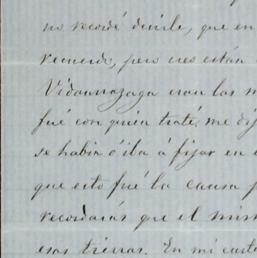 no recordé decirle, que en
recuerdo, pero eres están
Vidaurrazaga eran las m
fué con quien traté, me dij
se habia ó iba á fijar en e
que esto fué la causa p
recordarás que el mism
esas tierras. En mi carta